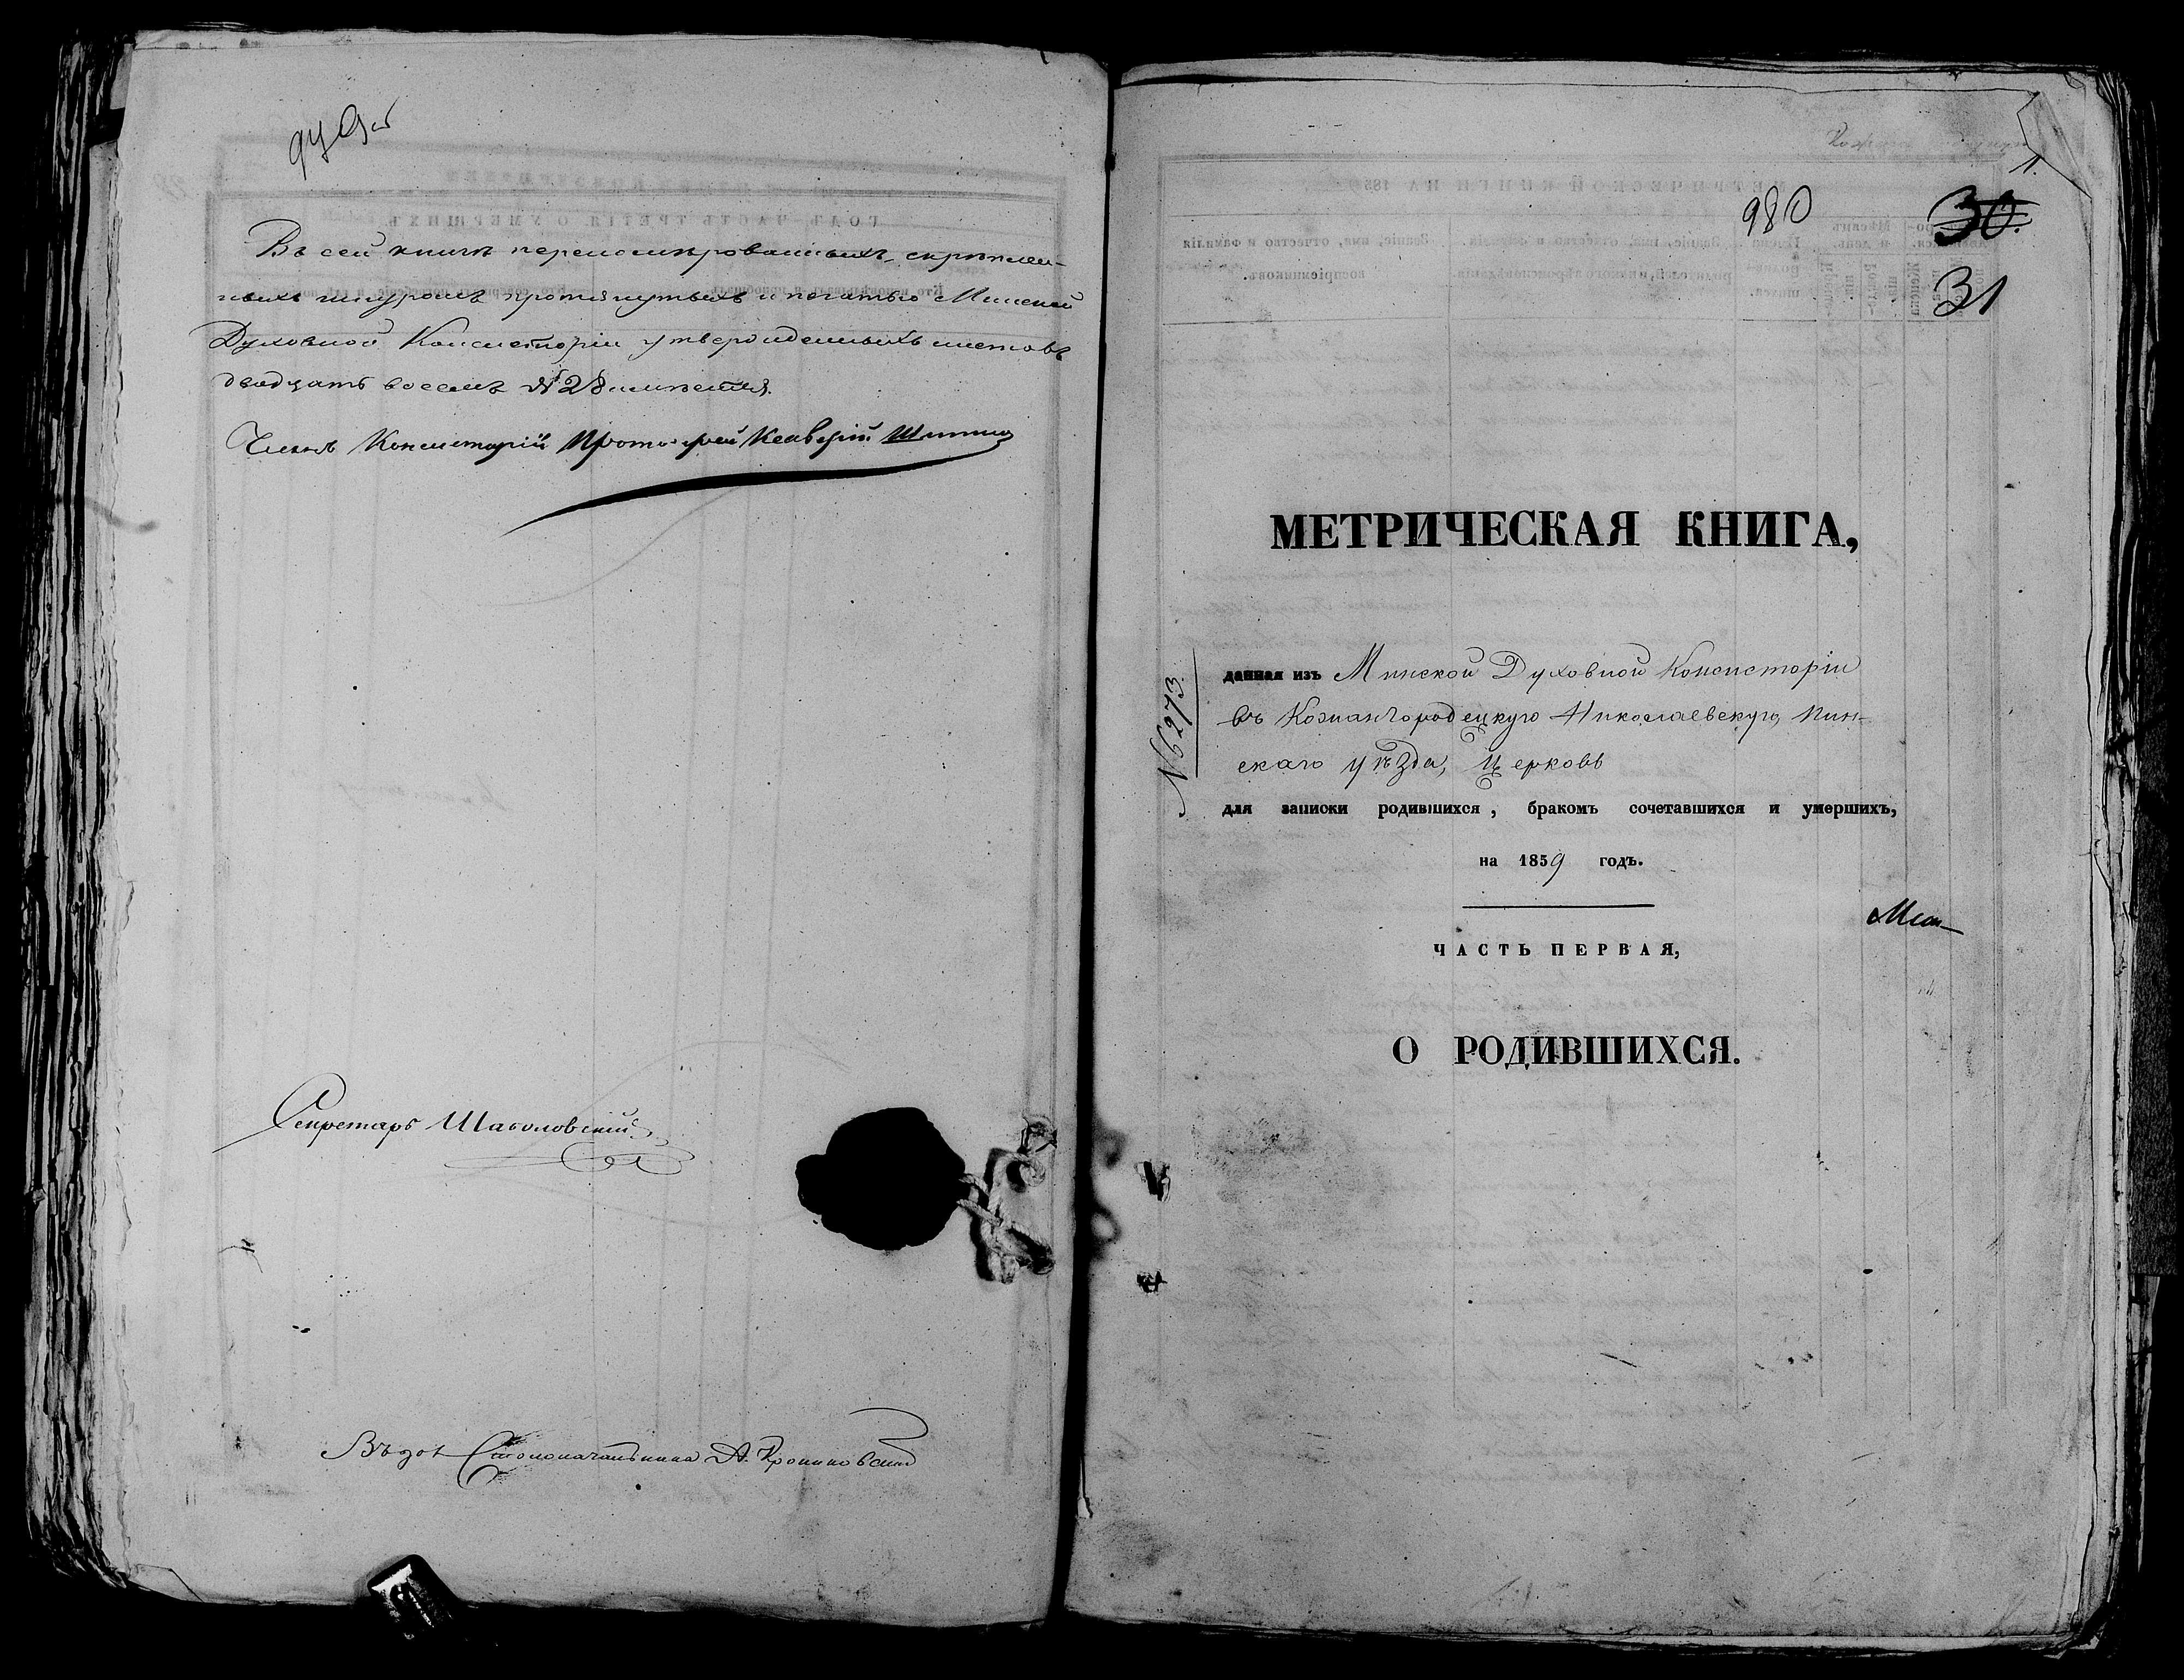 979 об
Въ сей книгѣ переномерованныхъ, скрѣплен-
ныхъ шнуромъ протянутыхъ и печатью Минской
Духовной Консисторіи утвержденныхъ листовъ
двадцать восемь № 28 имѣется.
Членъ Консисторіи Протоіерей
Секретарь
Столоначальника А.
1.
980
30.
31
МЕТРИЧЕСКАЯ КНИГА,
№ 6273.
данная изъ Минской Духовной Консисторіи
въ Кожангородецкую Николаевскую, Пин-
скаго уѣзда, Церковь
для записки родившихся, бракомъ сочетавшихся и умершихъ,
на 1859 годъ.
ЧАСТЬ ПЕРВАЯ,
О РОДИВШИХСЯ.